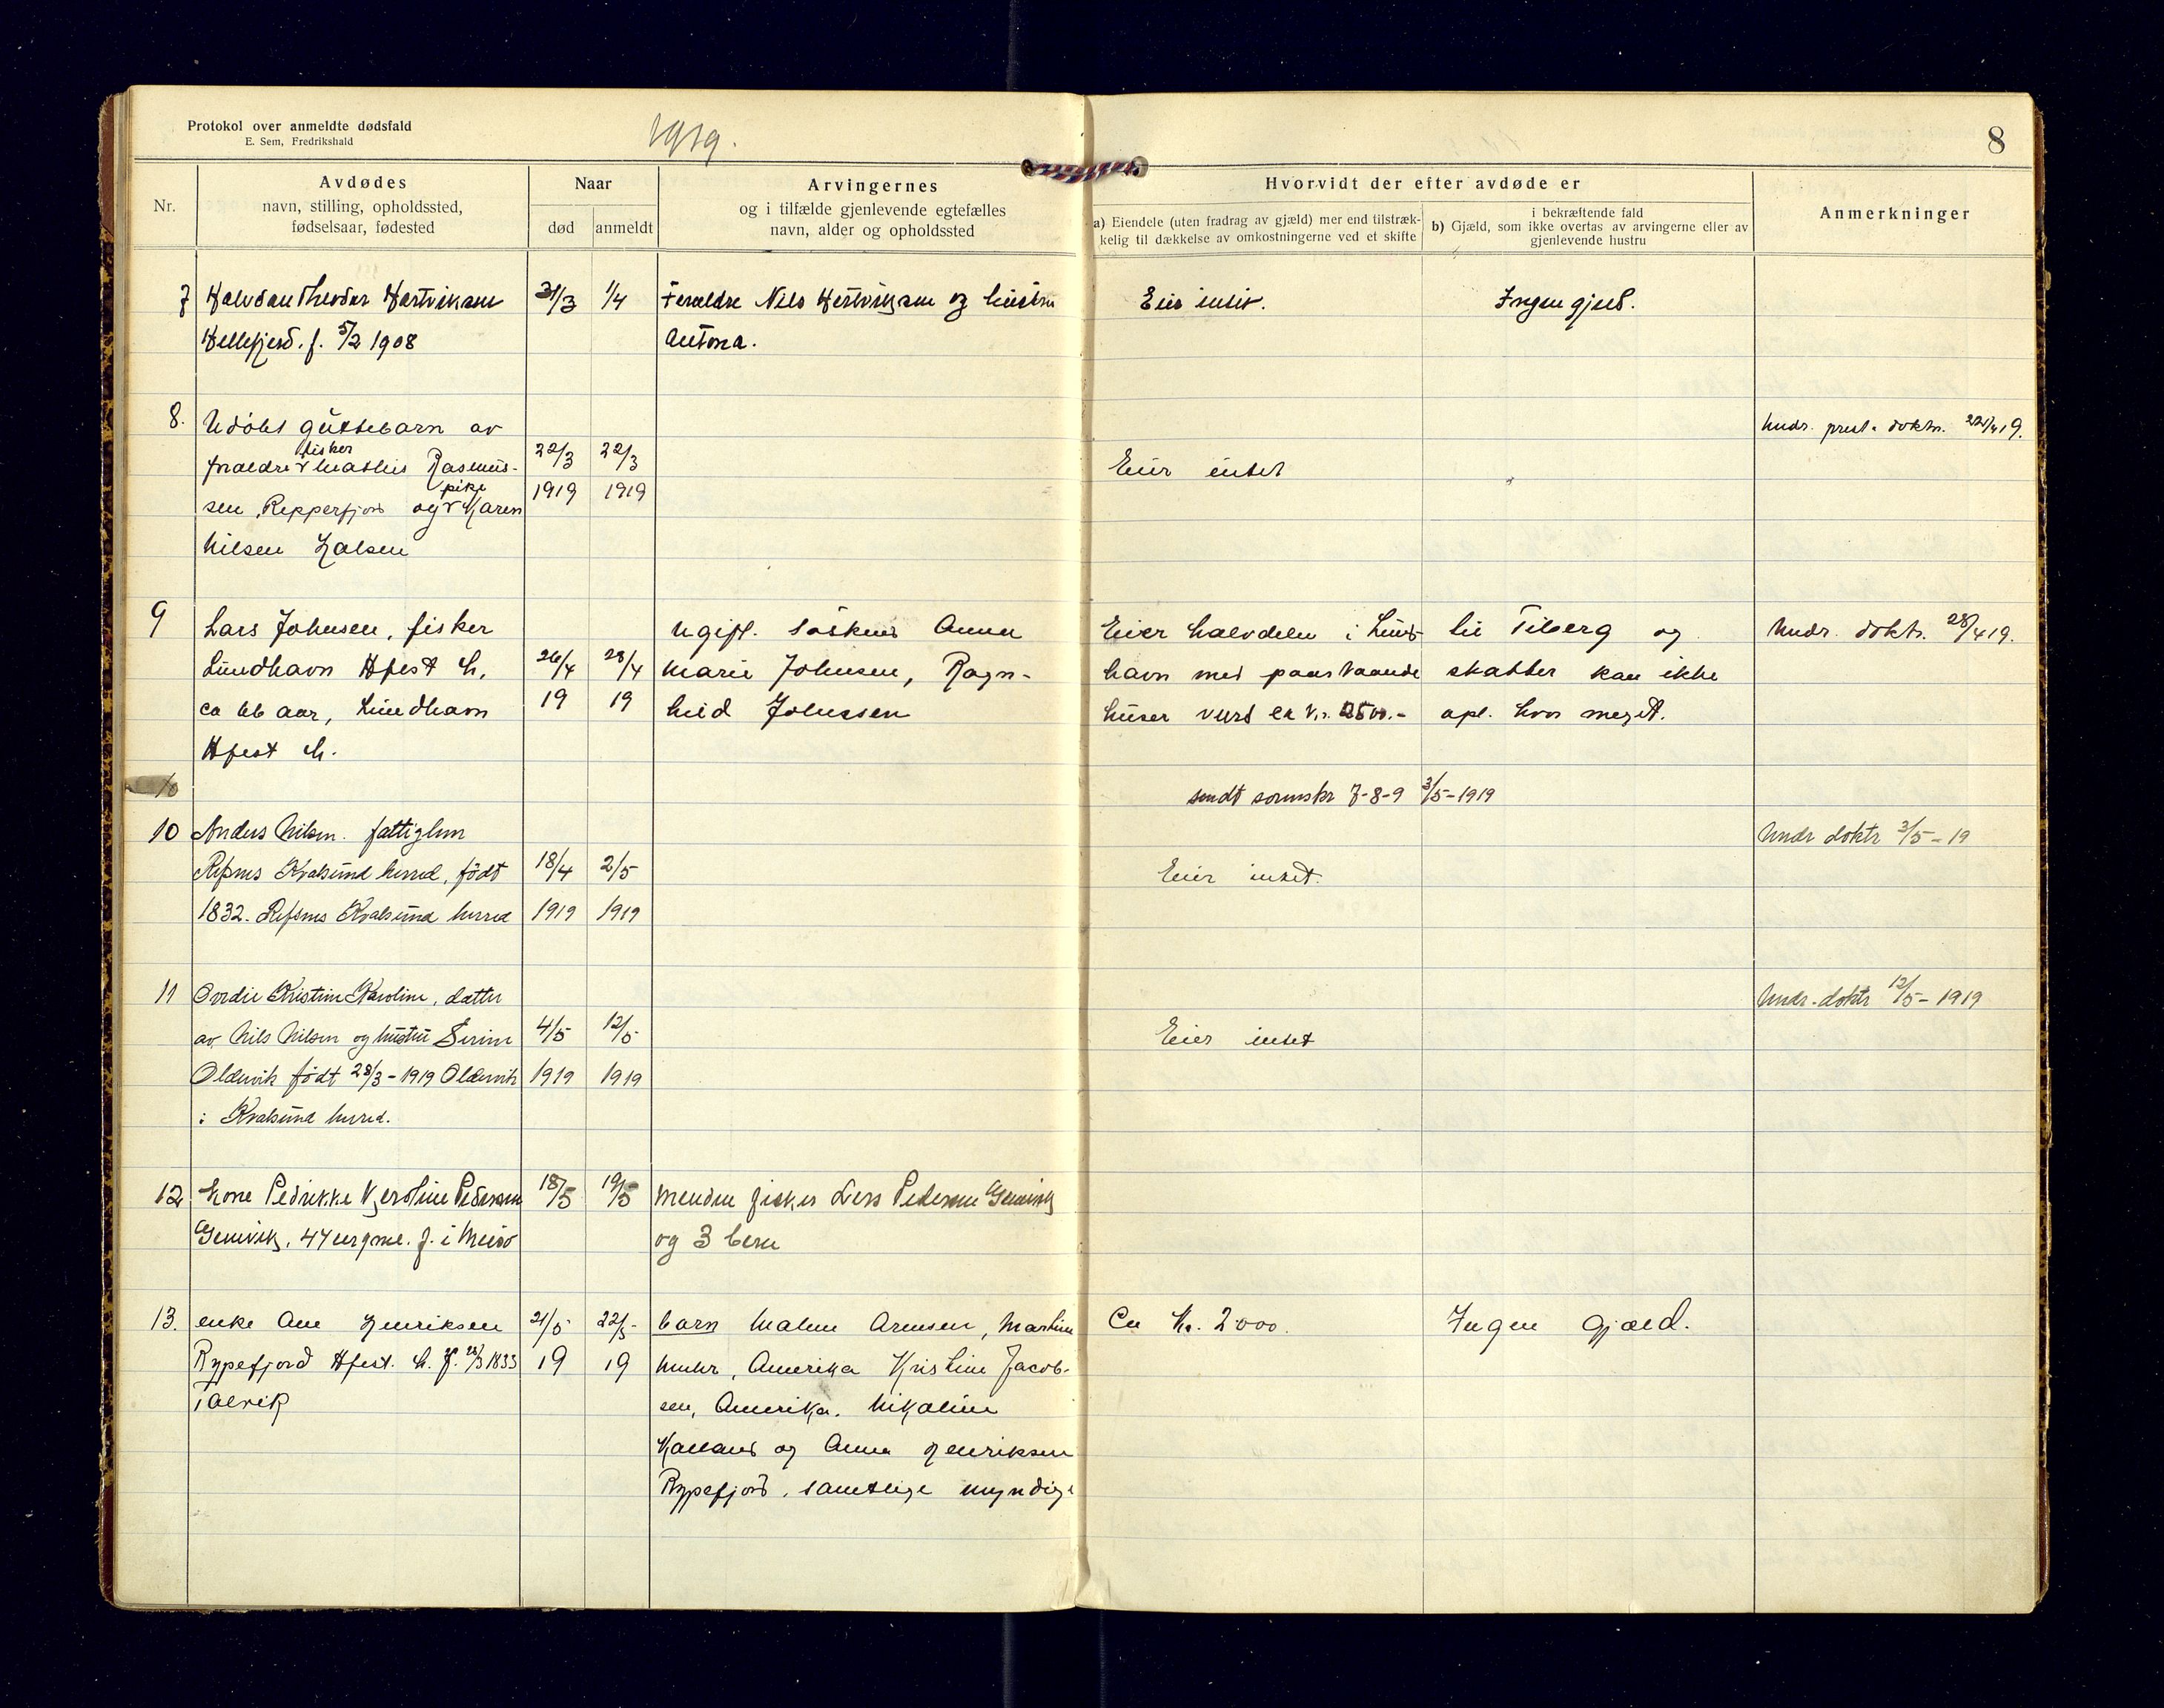 Protokol over anmeldte dødsfald
E. Sem, Fredrikshald
1919.
8
Nr.
Avdødes
navn, stilling, opholdssted,
fødselsaar, fødested
Naar
død
anmeldt
Arvingernes
og i tilfælde gjenlevende egtefælles
navn, alder og opholdssted
Hvorvidt der efter avdøde er
a) Eiendele (uten fradrag av gjæld) mer end tilstræk-
kelig til dækkelse av omkostningerne ved et skifte
i bekræftende fald
b) Gjæld, som ikke overtas av arvingerne eller av
gjenlevende hustru
Anmerkninger
7 Halvdan Theodor Hartviksen 31/3 1/4 Foraldre Nils Hartviksen og hustru Eier intet. Ingen gjeld.
Hellefjord. f. 5/2 1908 Antona.
8. Udöbt guttebarn av Undr. prest. doktr. 22/4 19.
fisker
foraldre Mathis Rasmus- 22/3 22/3 Eier intet
pike
sen, Repperfjord og Karen 1919 1919
Nilsen
9 Lars Johnsen, fisker Ugift. Söskend Anna Eier halvdelen i Lund- til Tiberg og Undr. doktr. 28/4 19.
Lundhavn Hfest h. 26/4 28/4 Marie Johnsen, Ragn- havn med paastaaende skatter kan ikke
ca 66 aar, Lundhavn 19 19 hild Johnsen huser verd ca kr. 2500.- opl. hvor meget.
Hfest h.
10
sendt sorenskr 7-8-9 3/5-1919
10 Anders Nilsen. fattiglem Undr doktr 3/5-19
Refsnes Kvalsund herred, födt 18/4 2/5 Eier intet.
1832. Refsnes Kvalsund herred 1919 1919
11 Ovedie Kristine Karoline, datter Undr. doktr 12/5-1919
av Nils Nilsen og hustru Serine 4/5 12/5 Eier intet
Oldervik födt 28/3-1919 Oldervik 1919 1919
i Kvalsund herred.
12 Kone Pedrikke Karoline Pedersen 18/5 19/5 Manden fisker Lars Pedersen Genvik
Genvik, 44 aar gml. f. i og 3 barn
13. enke Ane Henriksen 21/5 22/5 barn Malene Arensen, Martine Ca Kr. 2000. Ingen gjæld.
Rypefjord Hfest. h. f. 1833 19 19 Amerika Kristine Jacob-
Talvik sen, Amerika. Nikoline
og Anna Henriksen
Rypefjord, samtlige myndige